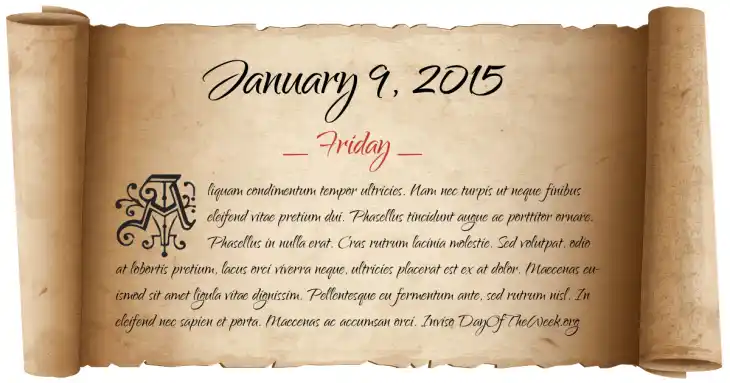 January 9, 2015
_ Friday _
Aliquam condimentum tempor ultricies. Nam nec turpis ut neque finibus
eleifend vitae pretium dui. Phasellus tincidunt augue ac porttitor ornare.
Phasellus in nulla erat. Cras rutrum lacinia molestie. Sed volutpat, odio
at lobortis pretium, lacus orci viverra neque, ultricies placerat est ex at dolor. Maecenas eu-
ismod sit amet ligula vitae dignissim. Pellentesque eu fermentum ante, sed rutrum nisl. In
eleifend nec sapien et porta. Maecenas ac accumsan orci. Invise DayOfTheWeek.org